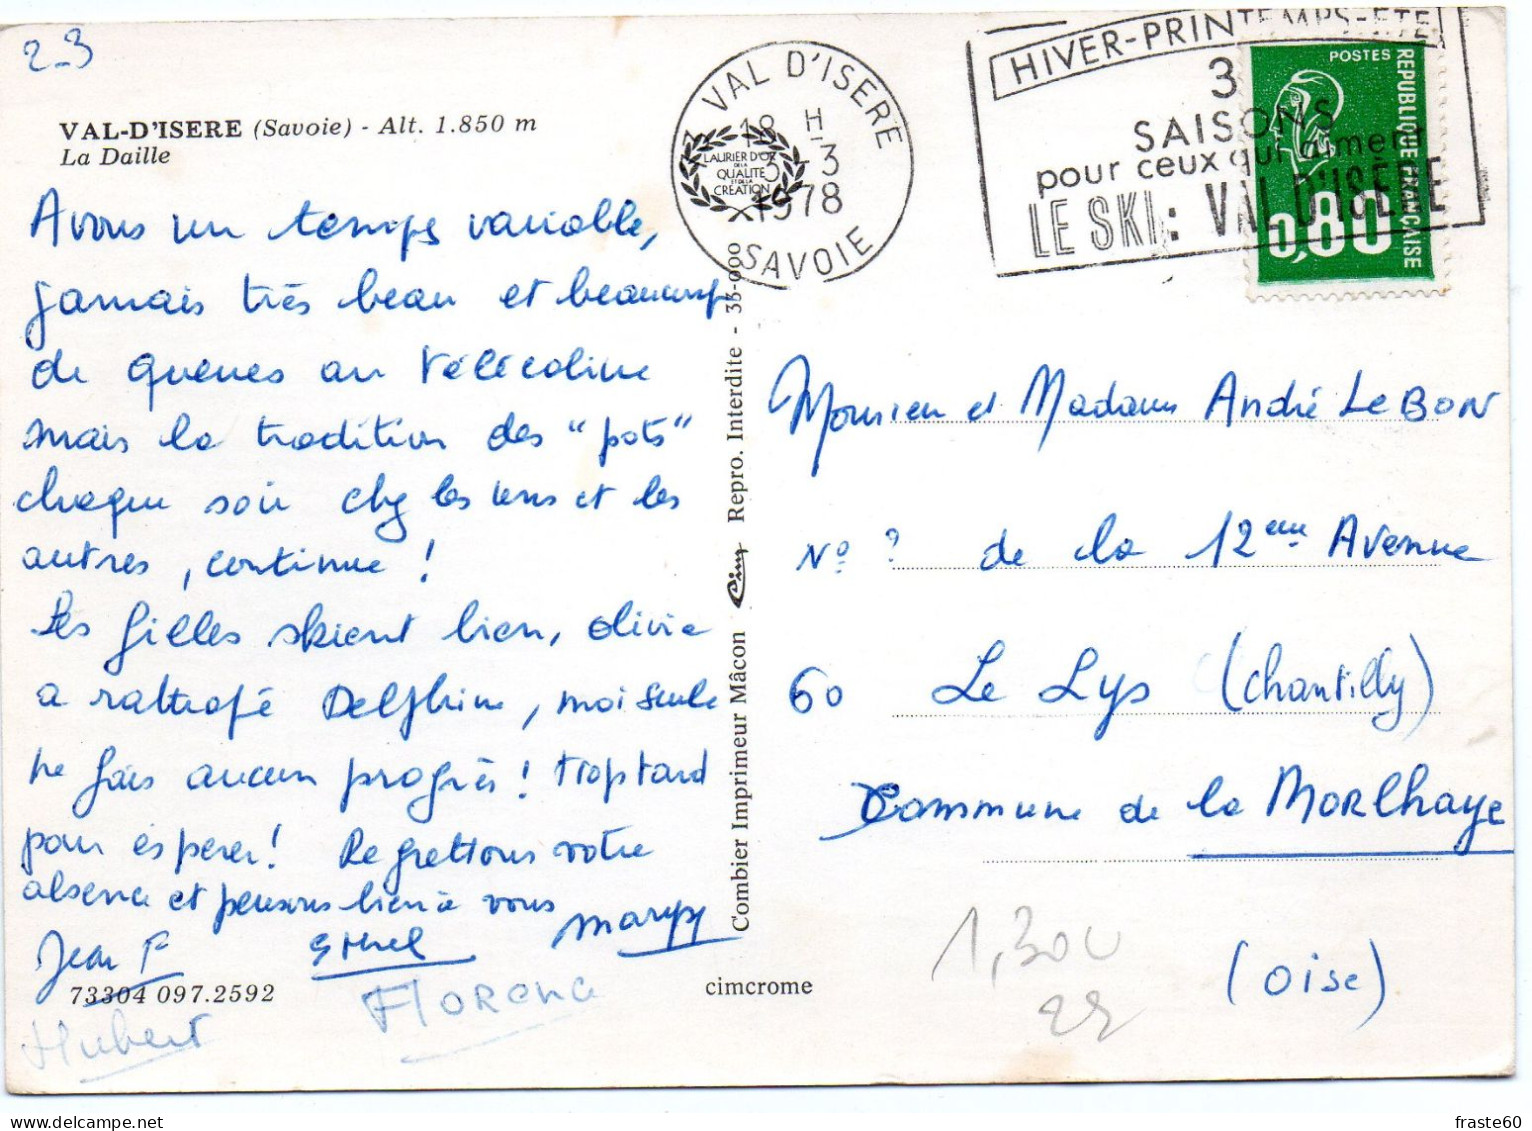 2_3
VAL-D'ISERE (Savoie) - Alt. 1.850 m
La Daille
Avons un temps variable,
jamais très beau et beaucoup
de queues au Télécoline
mais la tradition des "pots"
chaque soir chez les uns et les
autres, continue !
Les filles skient bien, Olivia
a rattrapé Delphine, moi seule
ne fais aucun progrès ! trop tard
pour espérer ! Regrettons votre
absence et pensons bien à vous
Jean F
Ethel
Maryse
73304 097.2592
Florence
Hubert
cimcrome
Combier Imprimeur Mâcon Cim Repro. Interdite - 33-000
VAL D'ISERE
18 H
3-3
1978
SAVOIE
LAURIER D'OR
DE LA
QUALITE
ET DE LA
CREATION
HIVER-PRINTEMPS-ETE
3
SAISONS
pour ceux qui aiment
LE SKI: VAL D'ISÈRE
POSTES
REPUBLIQUE FRANÇAISE
0,80
Monsieur et Madame André LEBON
N° ? de la 12eme Avenue
60 Le Lys (Chantilly)
Commune de la MORLhaye
(Oise)
1,30U
fraste60